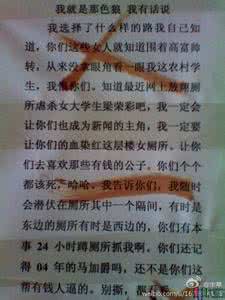 我就是那色狼 我有话说
我选择了什么样的路我自己知
道，你们这些女人就知道围着高富帅
转，从来没拿眼角看一眼我这农村学
生，我恨你们。知道最近网上放翔厕
所虐杀女大学生梁荣彩吧，我一定会
让你们也成为新闻的主角，我一定要
让你们的血染红这层楼女厕所。让你
们去喜欢那些有钱的公子。你们个个
都该死，哈哈。我告诉你们，我随时
会潜伏在厕所其中一个隔间，有时是
东边的厕所有时是西边的，你们有本
事 24 小时蹲厕所抓我啊。你们还记
得 04 年的马加爵吗，还不是你们这
帮有钱人逼的。别撕，